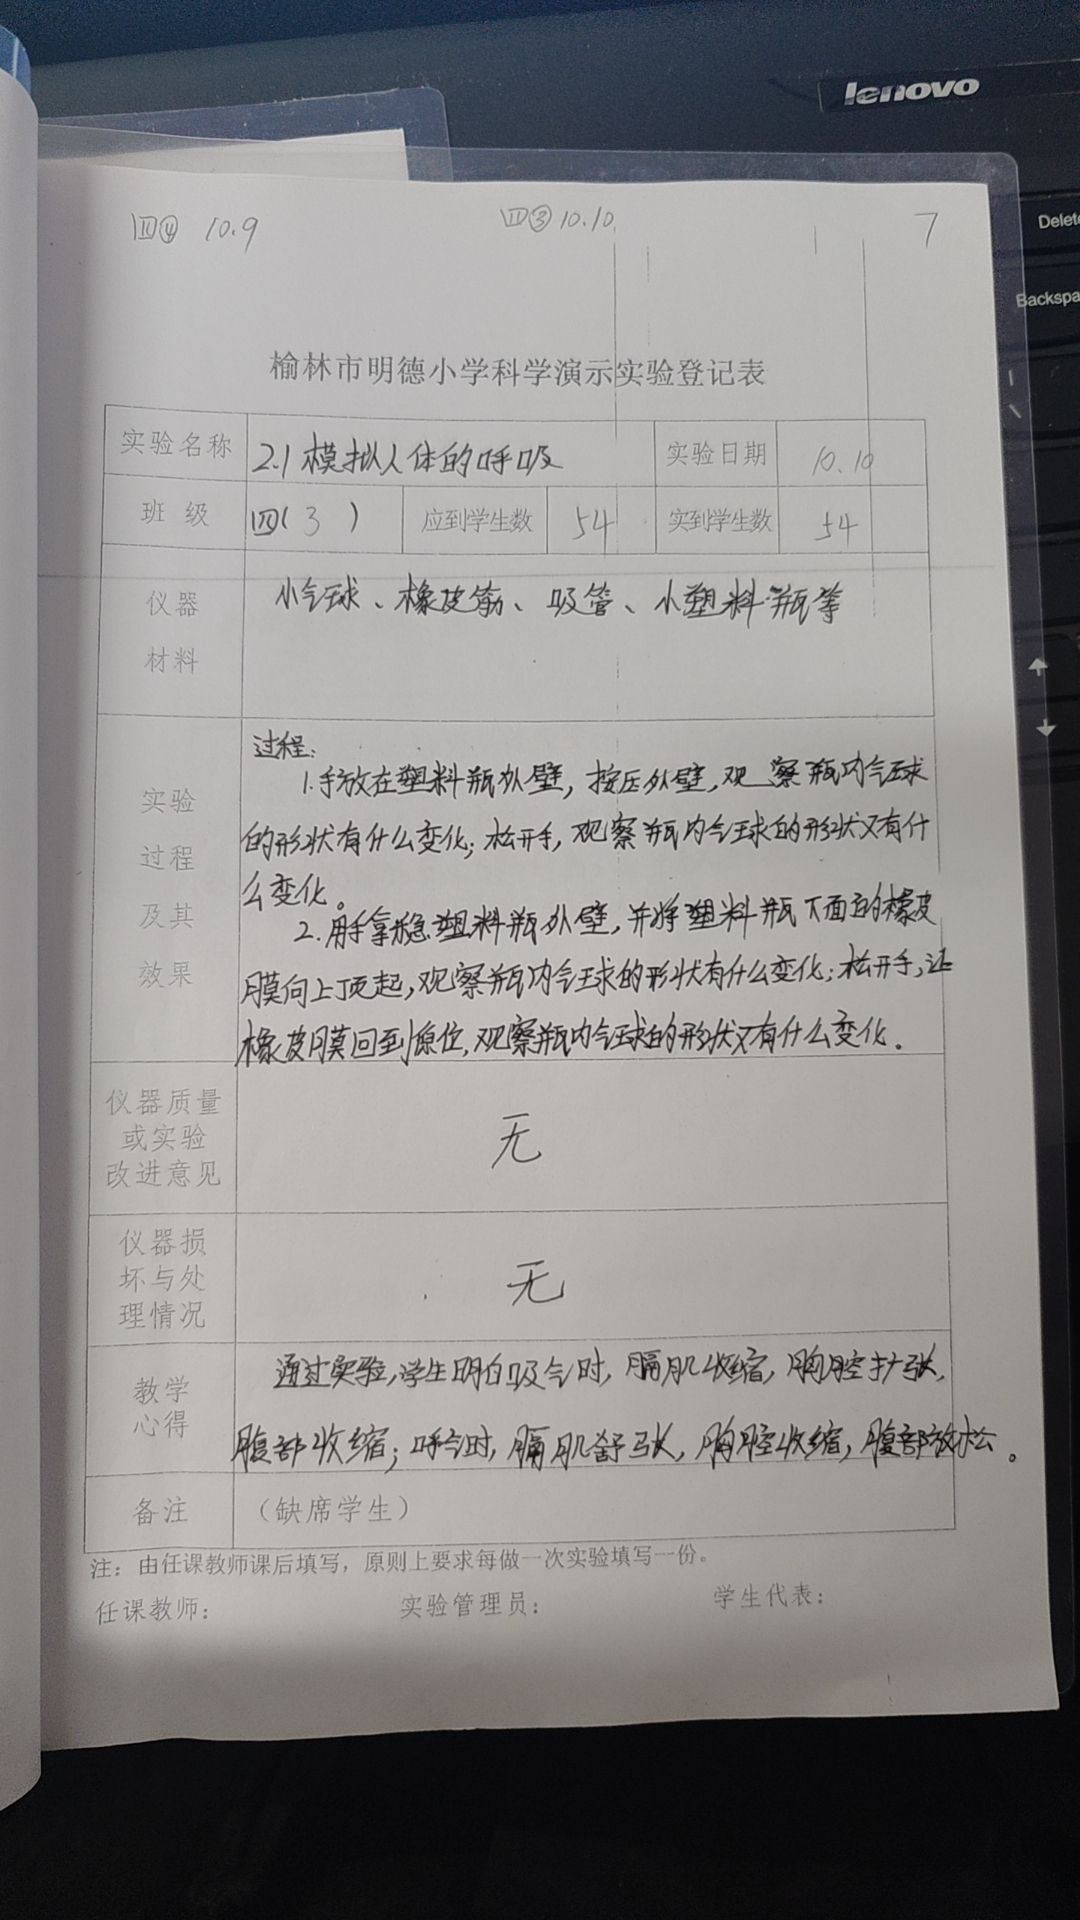 lenovo
Delete
Backspa
四④ 10.9
四③ 10.10
7
榆林市明德小学科学演示实验登记表
实验名称 2.1 模拟人体的呼吸 实验日期 10.10
班 级 四(3) 应到学生数 54 实到学生数 54
仪器
材料
小气球、橡皮筋、吸管、小塑料瓶等
实验
过程
及其
效果
过程:
1.手放在塑料瓶外壁,按压外壁,观察瓶内气球
的形状有什么变化;松开手,观察瓶内气球的形状又有什
么变化。
2.用手拿稳塑料瓶外壁,并将塑料瓶下面的橡皮
膜向上顶起,观察瓶内气球的形状有什么变化;松开手,让
橡皮膜回到原位,观察瓶内气球的形状又有什么变化.
仪器质量
或实验
改进意见
无
仪器损
坏与处
理情况
无
教学
心得
通过实验,学生明白吸气时,膈肌收缩,胸腔扩张,
腹部收缩;呼气时,膈肌舒张,胸腔收缩,腹部放松。
备注 (缺席学生)
注:由任课教师课后填写,原则上要求每做一次实验填写一份。
任课教师: 实验管理员: 学生代表: